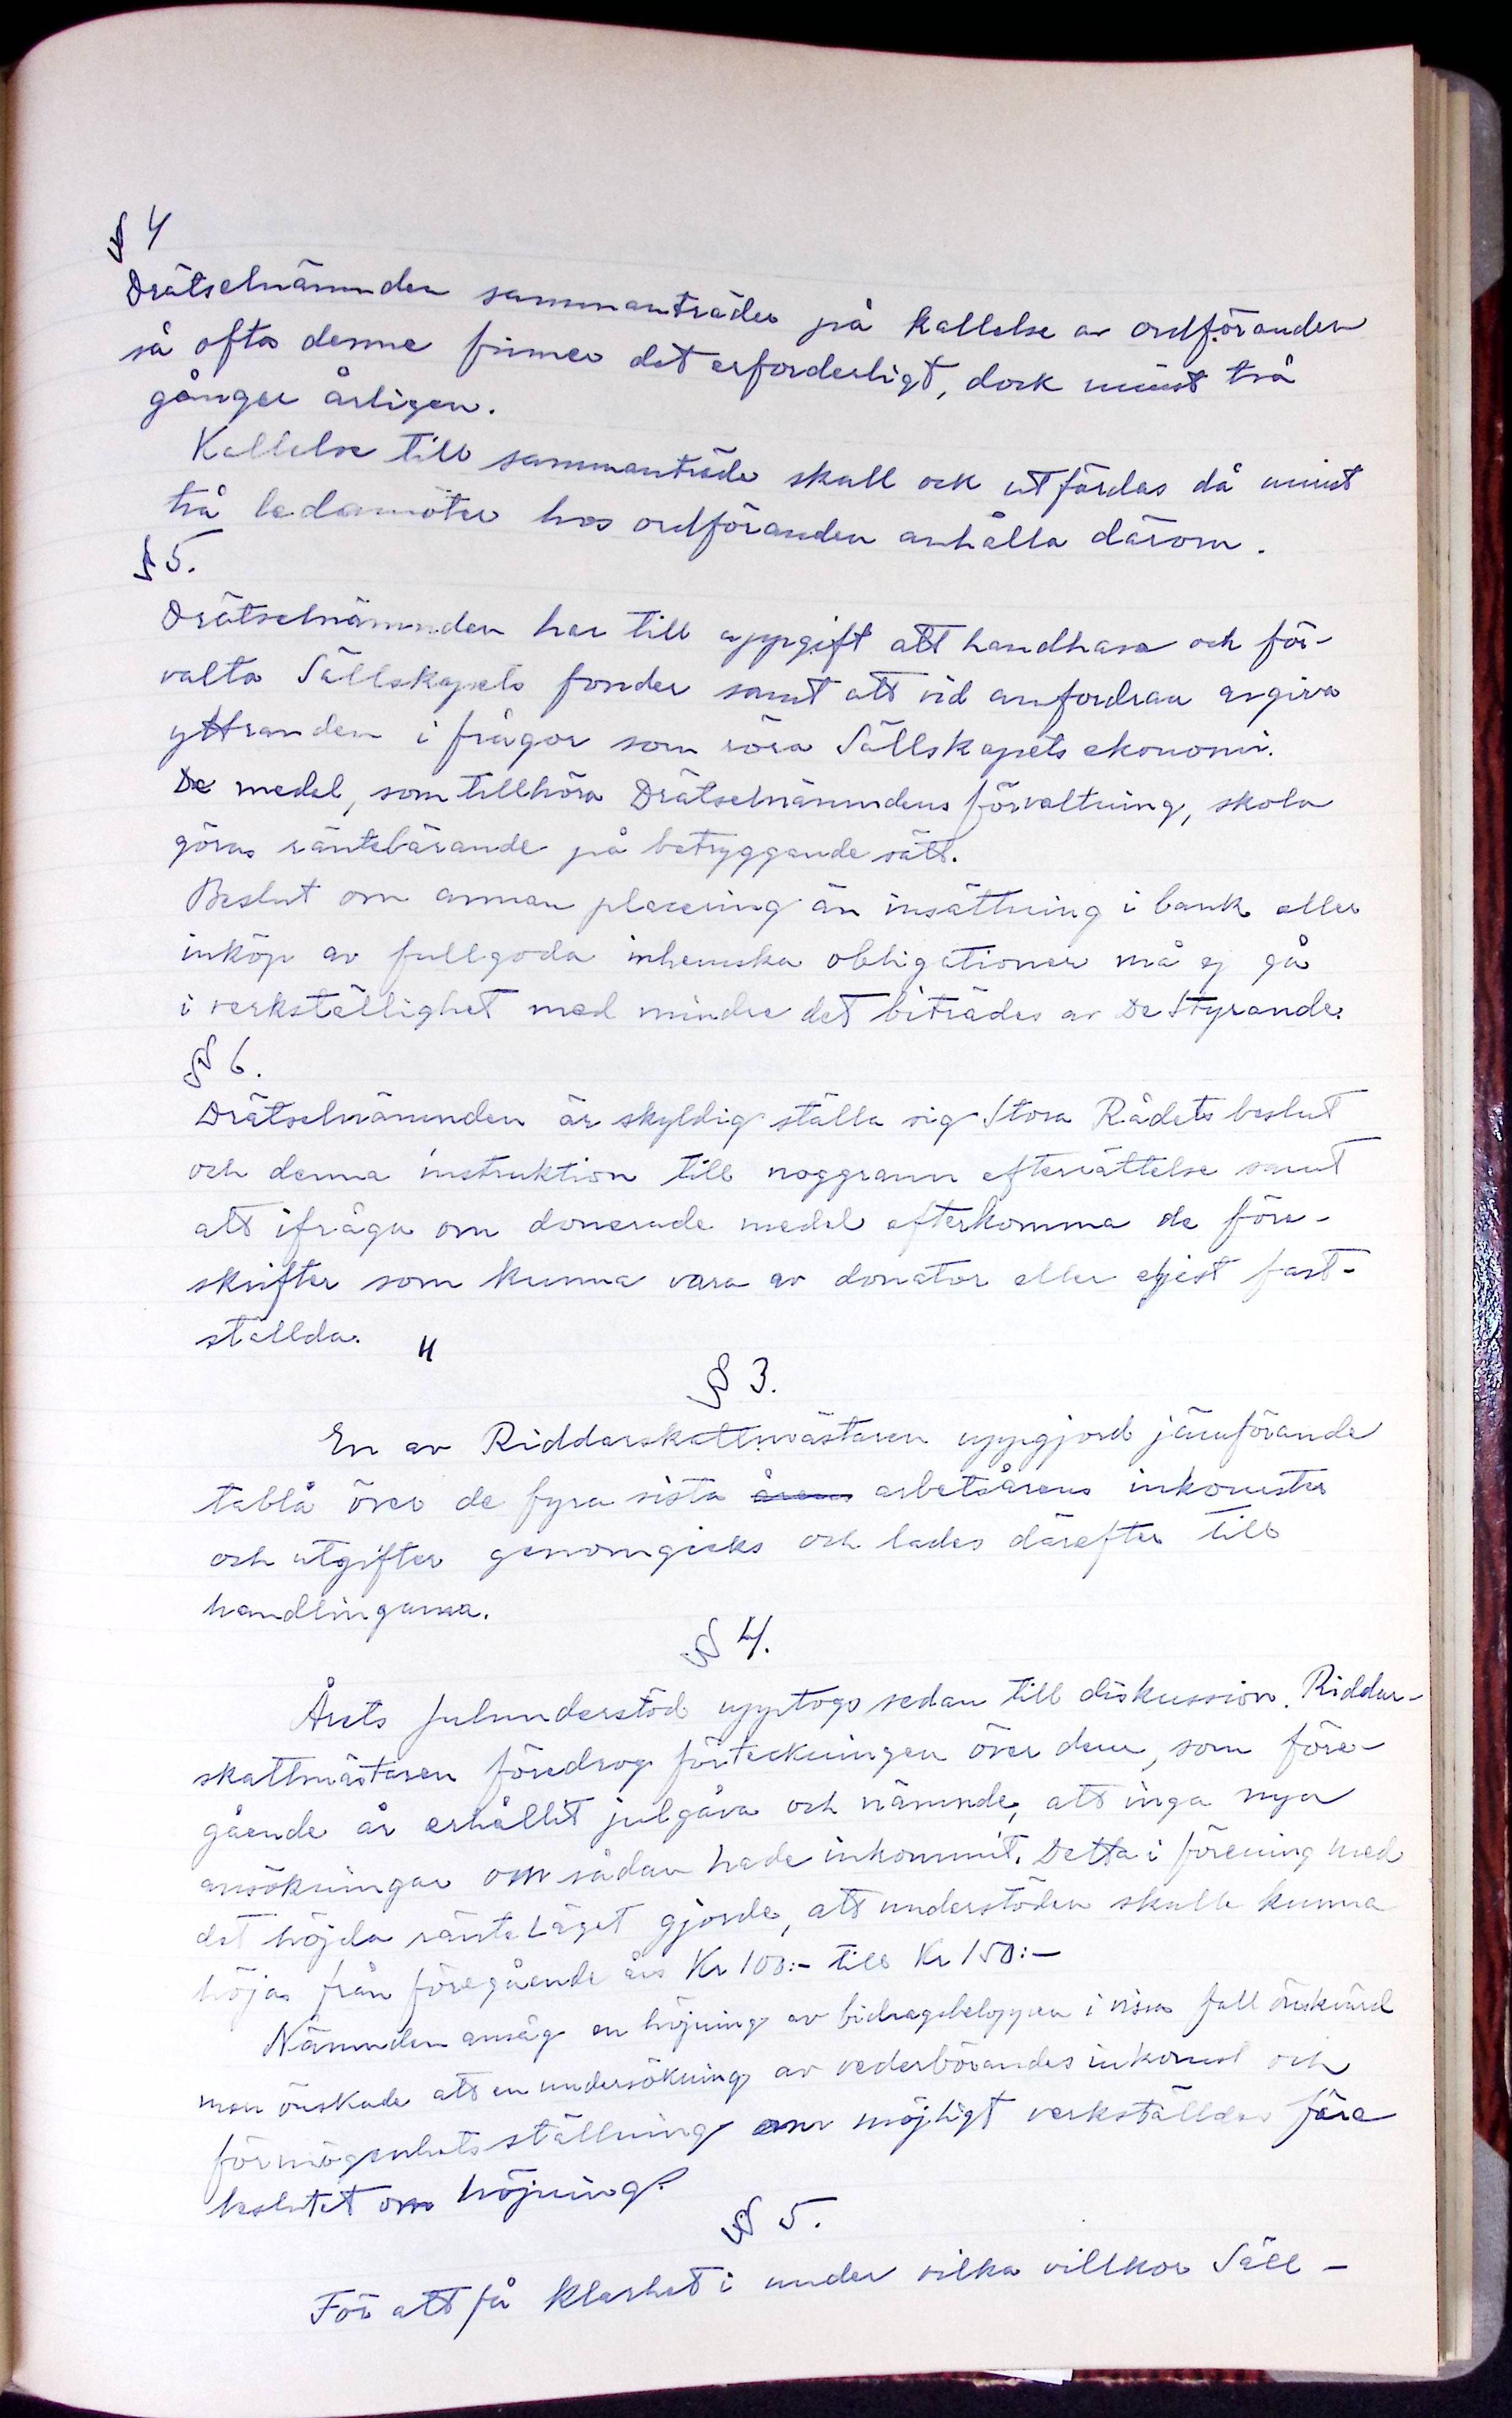 § 4
Drätselnämnden sammanträder på kallelse av ordföranden
så ofta denne finner det erforderligt, dock minst två
gånger årligen.
Kallelse till sammanträde skall ock utfärdas då minst
två ledamöter hos ordföranden anhålla därom.
§ 5.
Drätselnämnden har till uppgift att handhava och för-
valta Sällskapets fonder samt att vid anfordran avgiva
yttranden i frågor som röra Sällskapets ekonomi.
De medel, som tillhöra Drätselnämndens förvaltning, skola
göras räntebärande på betryggande sätt.
Beslut om annan placering än insättning i bank eller
inköp av fullgoda inhemska obligationer må ej gå
i verkställighet med mindre det biträdes av De Styrande.
§ 6.
Drätselnämnden är skyldig ställa sig Stora Rådets beslut
och denna instruktion till noggrann efterrättelse samt
att ifråga om donerade medel efterkomma de före-
skrifter som kunna vara av donator eller eljest fast-
ställda. "
§ 3.
En av Riddarskattmästaren uppgjord jämförande
tablå över de fyra sista årens arbetsårens inkomster
och utgifter genomgicks och lades därefter till
handlingarna.
§ 4.
Årets julunderstöd upptogs sedan till diskussion. Riddar-
skattmästaren föredrog förteckningen över dem, som före-
gående år erhållit julgåva och nämnde, att inga nya
ansökningar om sådan hade inkommit. Detta i förening med
det höjda ränteläget gjorde, att understöden skulle kunna
höjas från föregående års Kr 100:- till Kr 150:-
Nämnden ansåg en höjning av bidragsbeloppen i vissa fall önskvärd
men önskade att en undersökning av vederbörandes inkomst och
förmögenhetsställning om möjligt verkställdes före
beslutet om höjning.
§ 5.
För att få klarhet i under vilka villkor Säll-